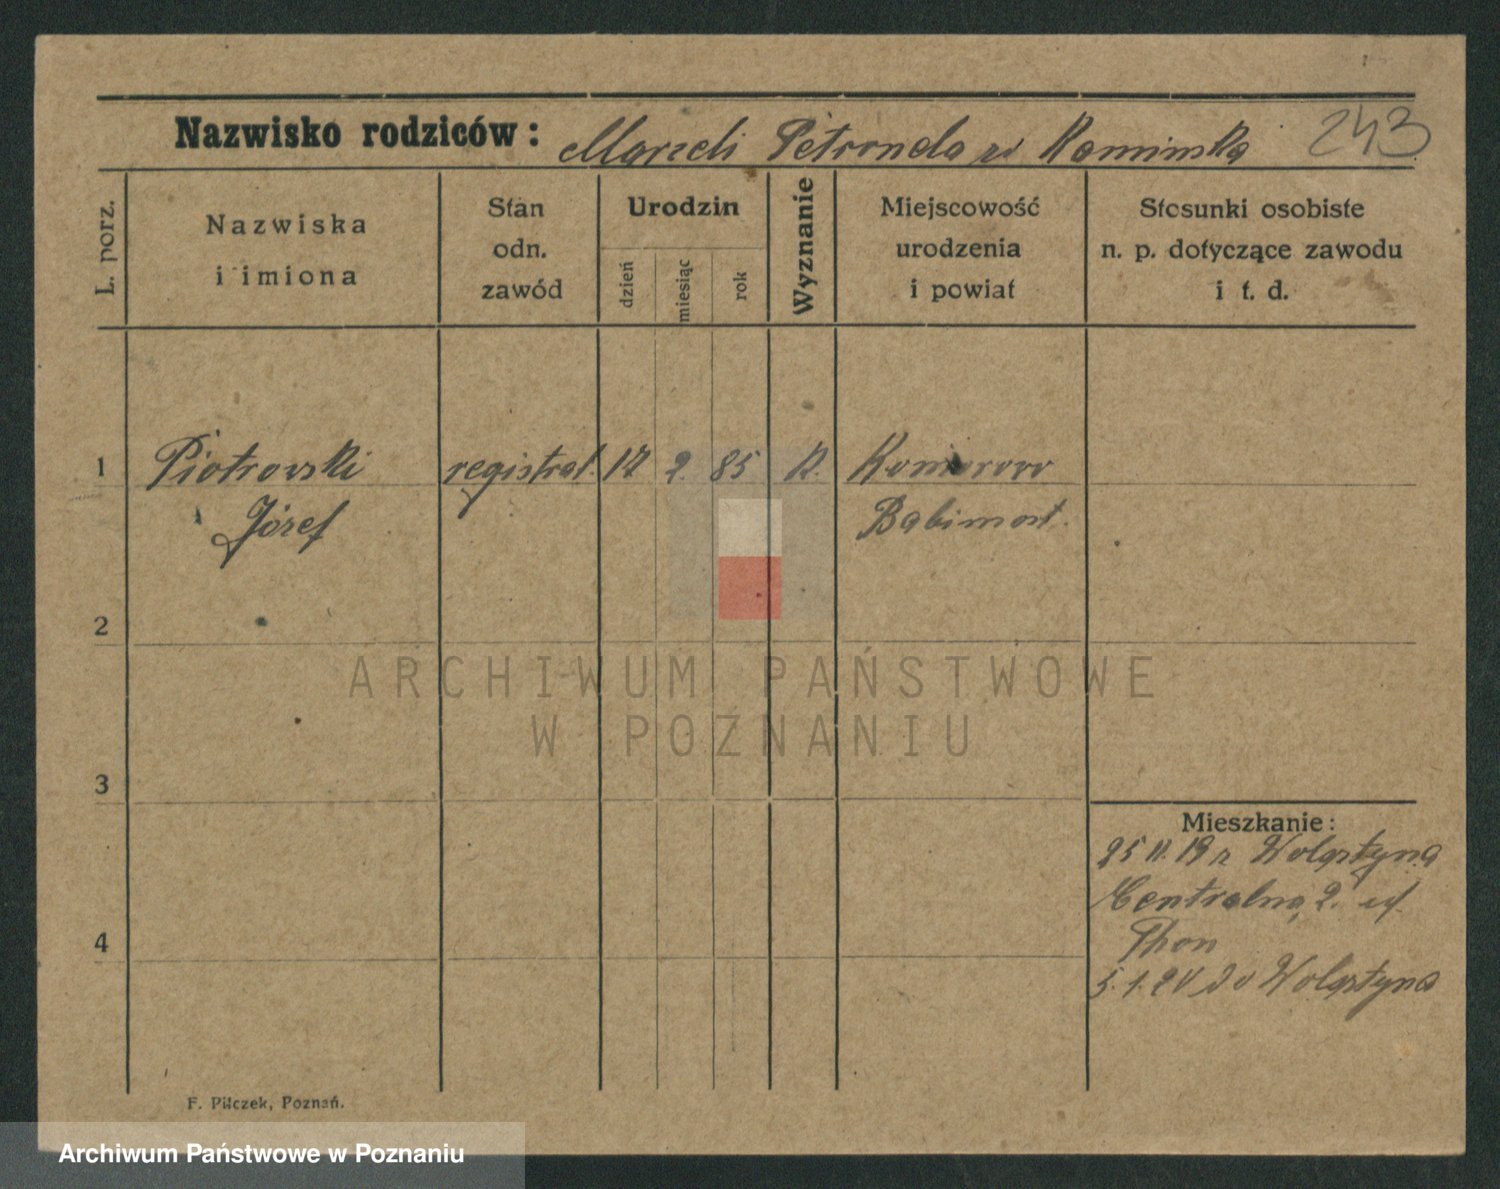 243
Nazwisko rodziców: Marceli Petronela zd Kaminska
L. porz.
Nazwiska
i imiona
Stan
odn.
zawód
Urodzin
dzień
miesiąc
rok
Wyznanie
Miejscowość
urodzenia
i powiat
Stosunki osobiste
n. p. dotyczące zawodu
i t. d.
1 Piotrowski registrat. 17 2. 85 K. Komorowo
Józef Babimost.
2
ARCHIWUM PAŃSTWOWE
W POZNANIU
3
Mieszkanie:
25 11. 19 z Wolsztyna
Centralna 2.
Thon
4
5. 1. 20 do Wolsztyna
F. Pilczek, Poznań.
Archiwum Państwowe w Poznaniu